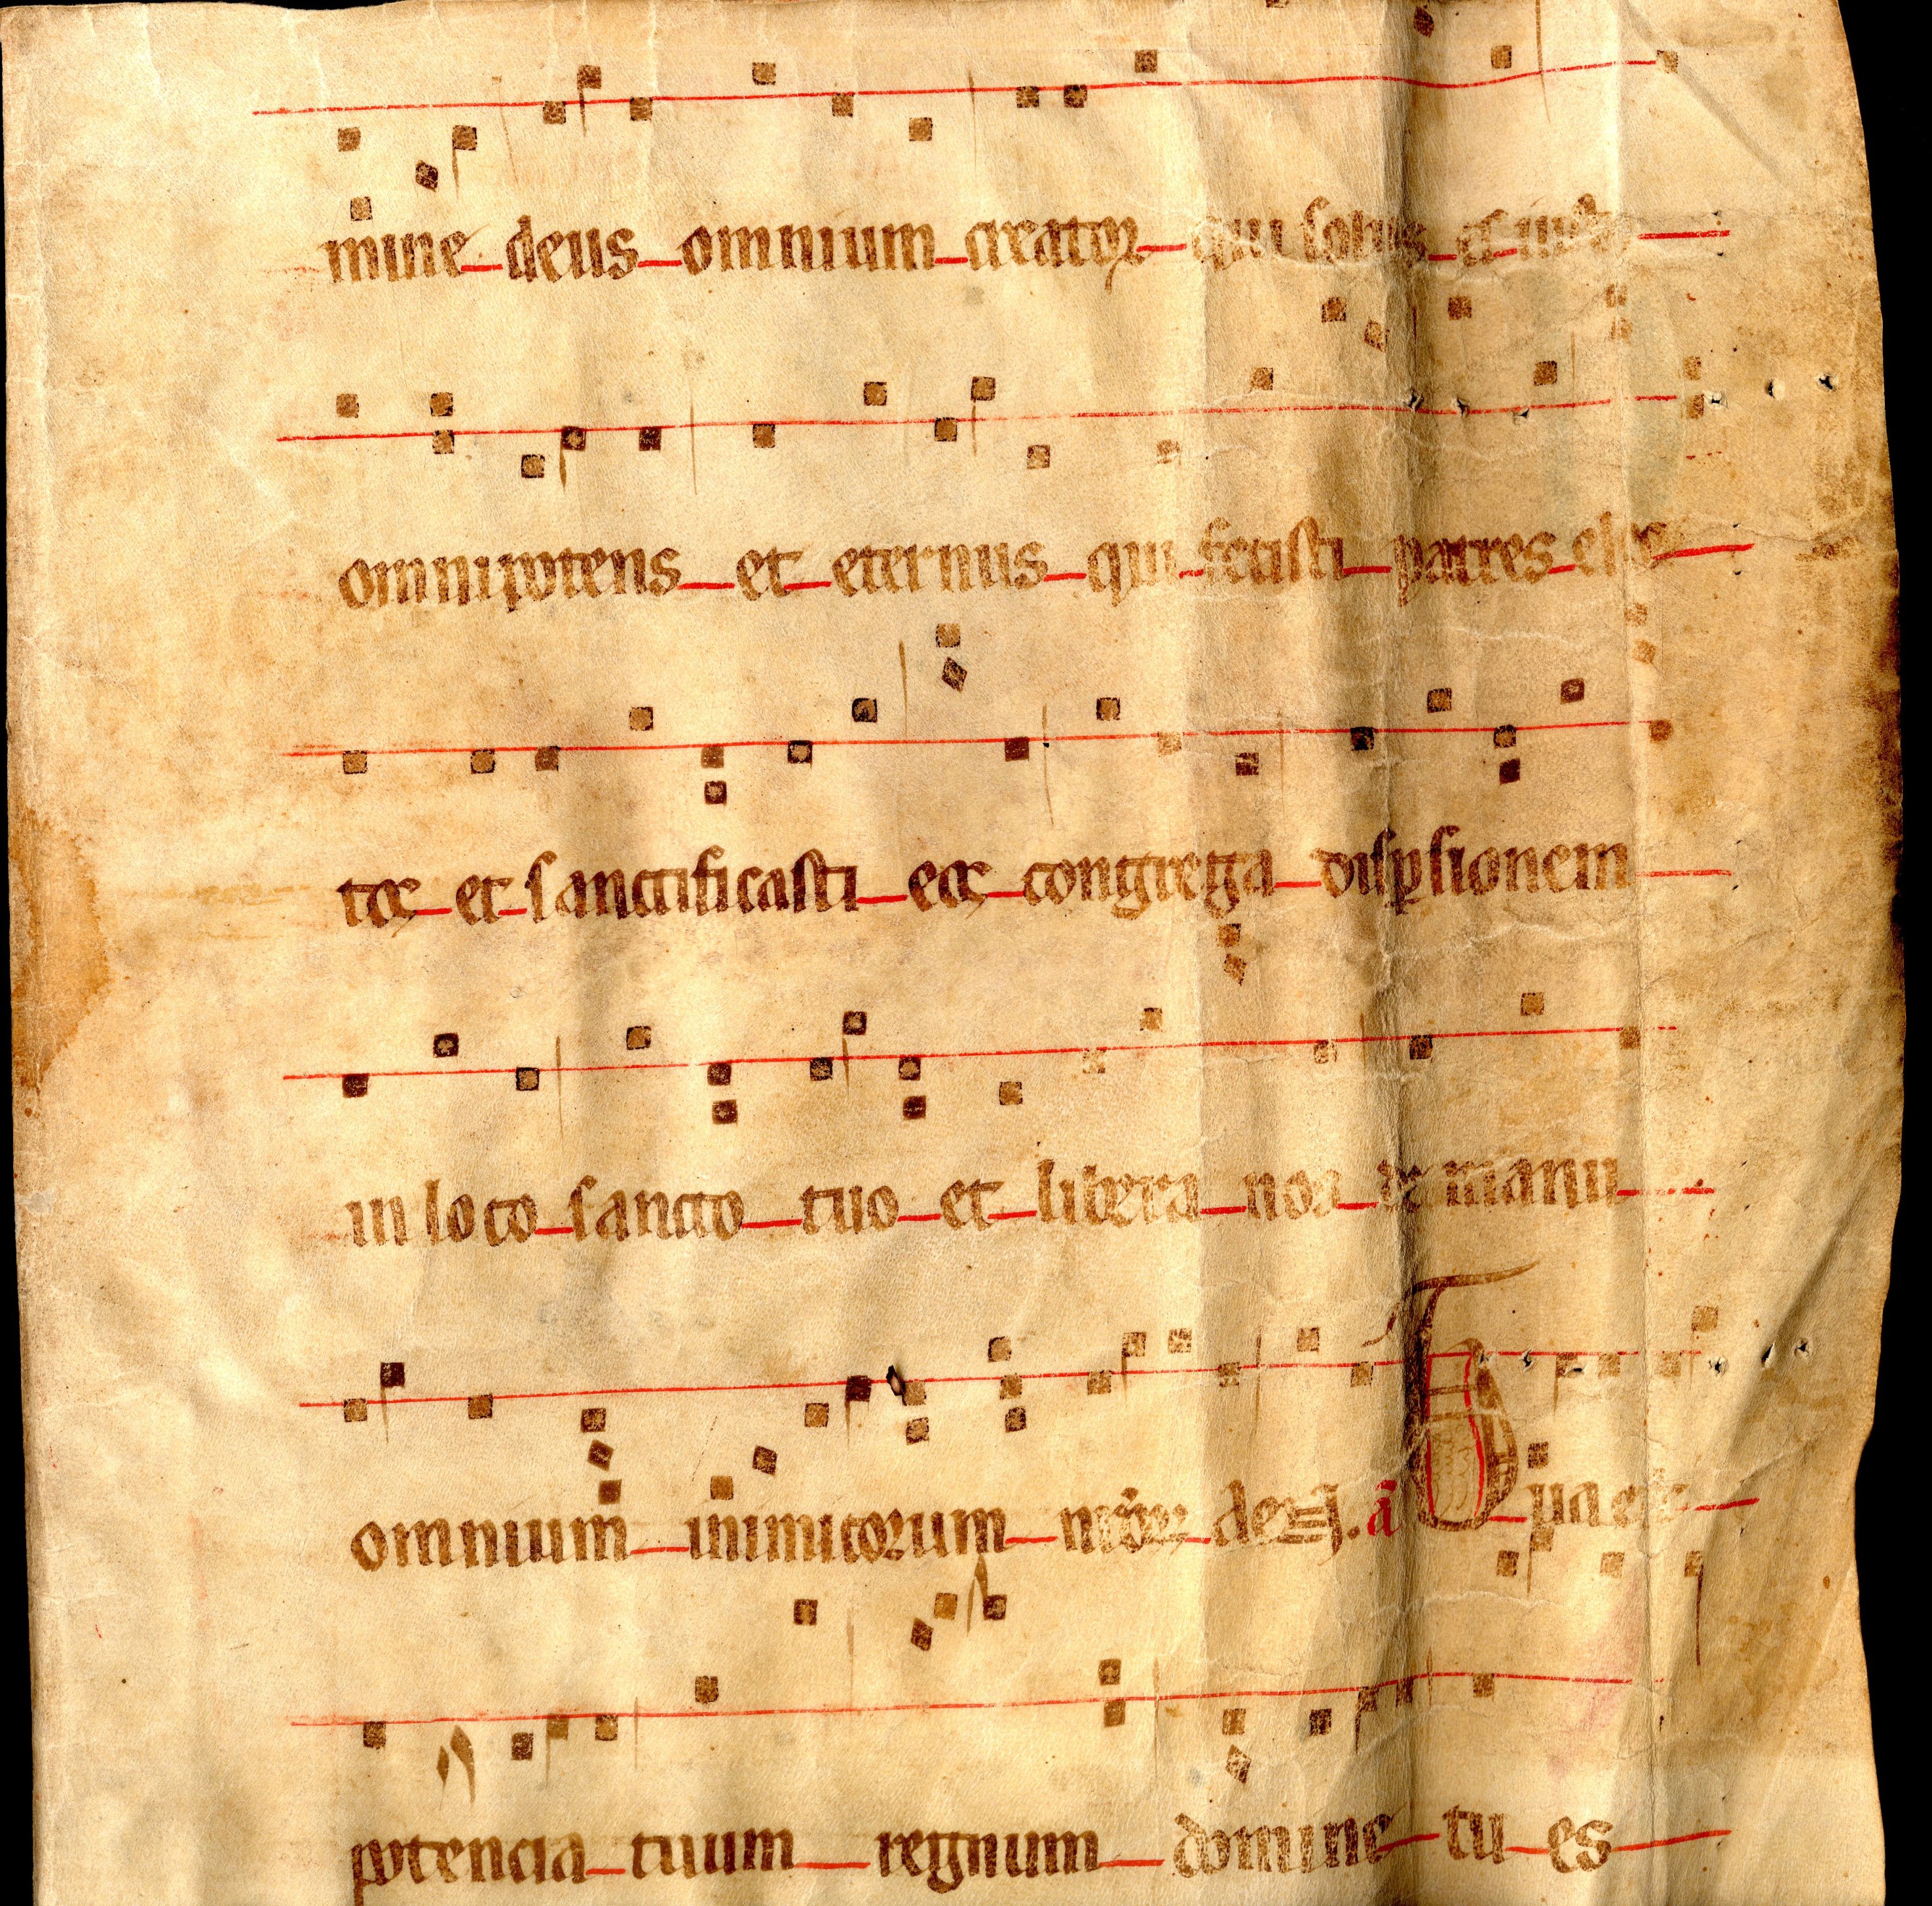 mine deus omnium creator qui solus es iust
omnipotens et eternus qui fecisti patres elec
tos et sanctificasti eos congrega dispsionem
in loco sancto tuo et libera nos de manu
omnium inimicorum nror de9. ã Tua est
potencia tuum regnum domine tu es